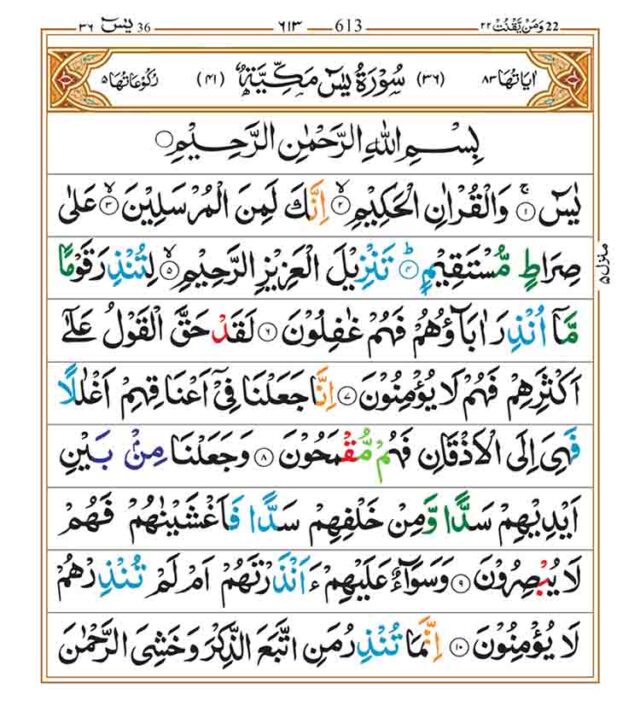 ٣٦ يٰسٓ 36 ٦١٣ 613 ٢٢ وَمَنْ يَّقْنُتْ 22
اٰيَاتُهَا ٨٣ (٣٦) سُوْرَةُ يٰسٓ مَكِّيَّةٌ (٤١) رُكُوْعَاتُهَا ٥
بِسْمِ اللّٰهِ الرَّحْمٰنِ الرَّحِيْمِ
يٰسٓ ١ وَالْقُرْاٰنِ الْحَكِيْمِ ٢ اِنَّكَ لَمِنَ الْمُرْسَلِيْنَ ٣ عَلٰى
صِرَاطٍ مُّسْتَقِيْمٍ ٤ تَنْزِيْلَ الْعَزِيْزِ الرَّحِيْمِ ٥ لِتُنْذِرَ قَوْمًا
مَّاۤ اُنْذِرَ اٰبَآؤُهُمْ فَهُمْ غٰفِلُوْنَ ٦ لَقَدْ حَقَّ الْقَوْلُ عَلٰۤى
اَكْثَرِهِمْ فَهُمْ لَا يُؤْمِنُوْنَ ٧ اِنَّا جَعَلْنَا فِيْۤ اَعْنَاقِهِمْ اَغْلٰلًا
فَهِيَ اِلَى الْاَذْقَانِ فَهُمْ مُّقْمَحُوْنَ ٨ وَجَعَلْنَا مِنْۢ بَيْنِ
اَيْدِيْهِمْ سَدًّا وَّمِنْ خَلْفِهِمْ سَدًّا فَاَغْشَيْنٰهُمْ فَهُمْ
لَا يُبْصِرُوْنَ ٩ وَسَوَآءٌ عَلَيْهِمْ ءَاَنْذَرْتَهُمْ اَمْ لَمْ تُنْذِرْهُمْ
لَا يُؤْمِنُوْنَ ١٠ اِنَّمَا تُنْذِرُ مَنِ اتَّبَعَ الذِّكْرَ وَخَشِيَ الرَّحْمٰنَ
منزل ٥